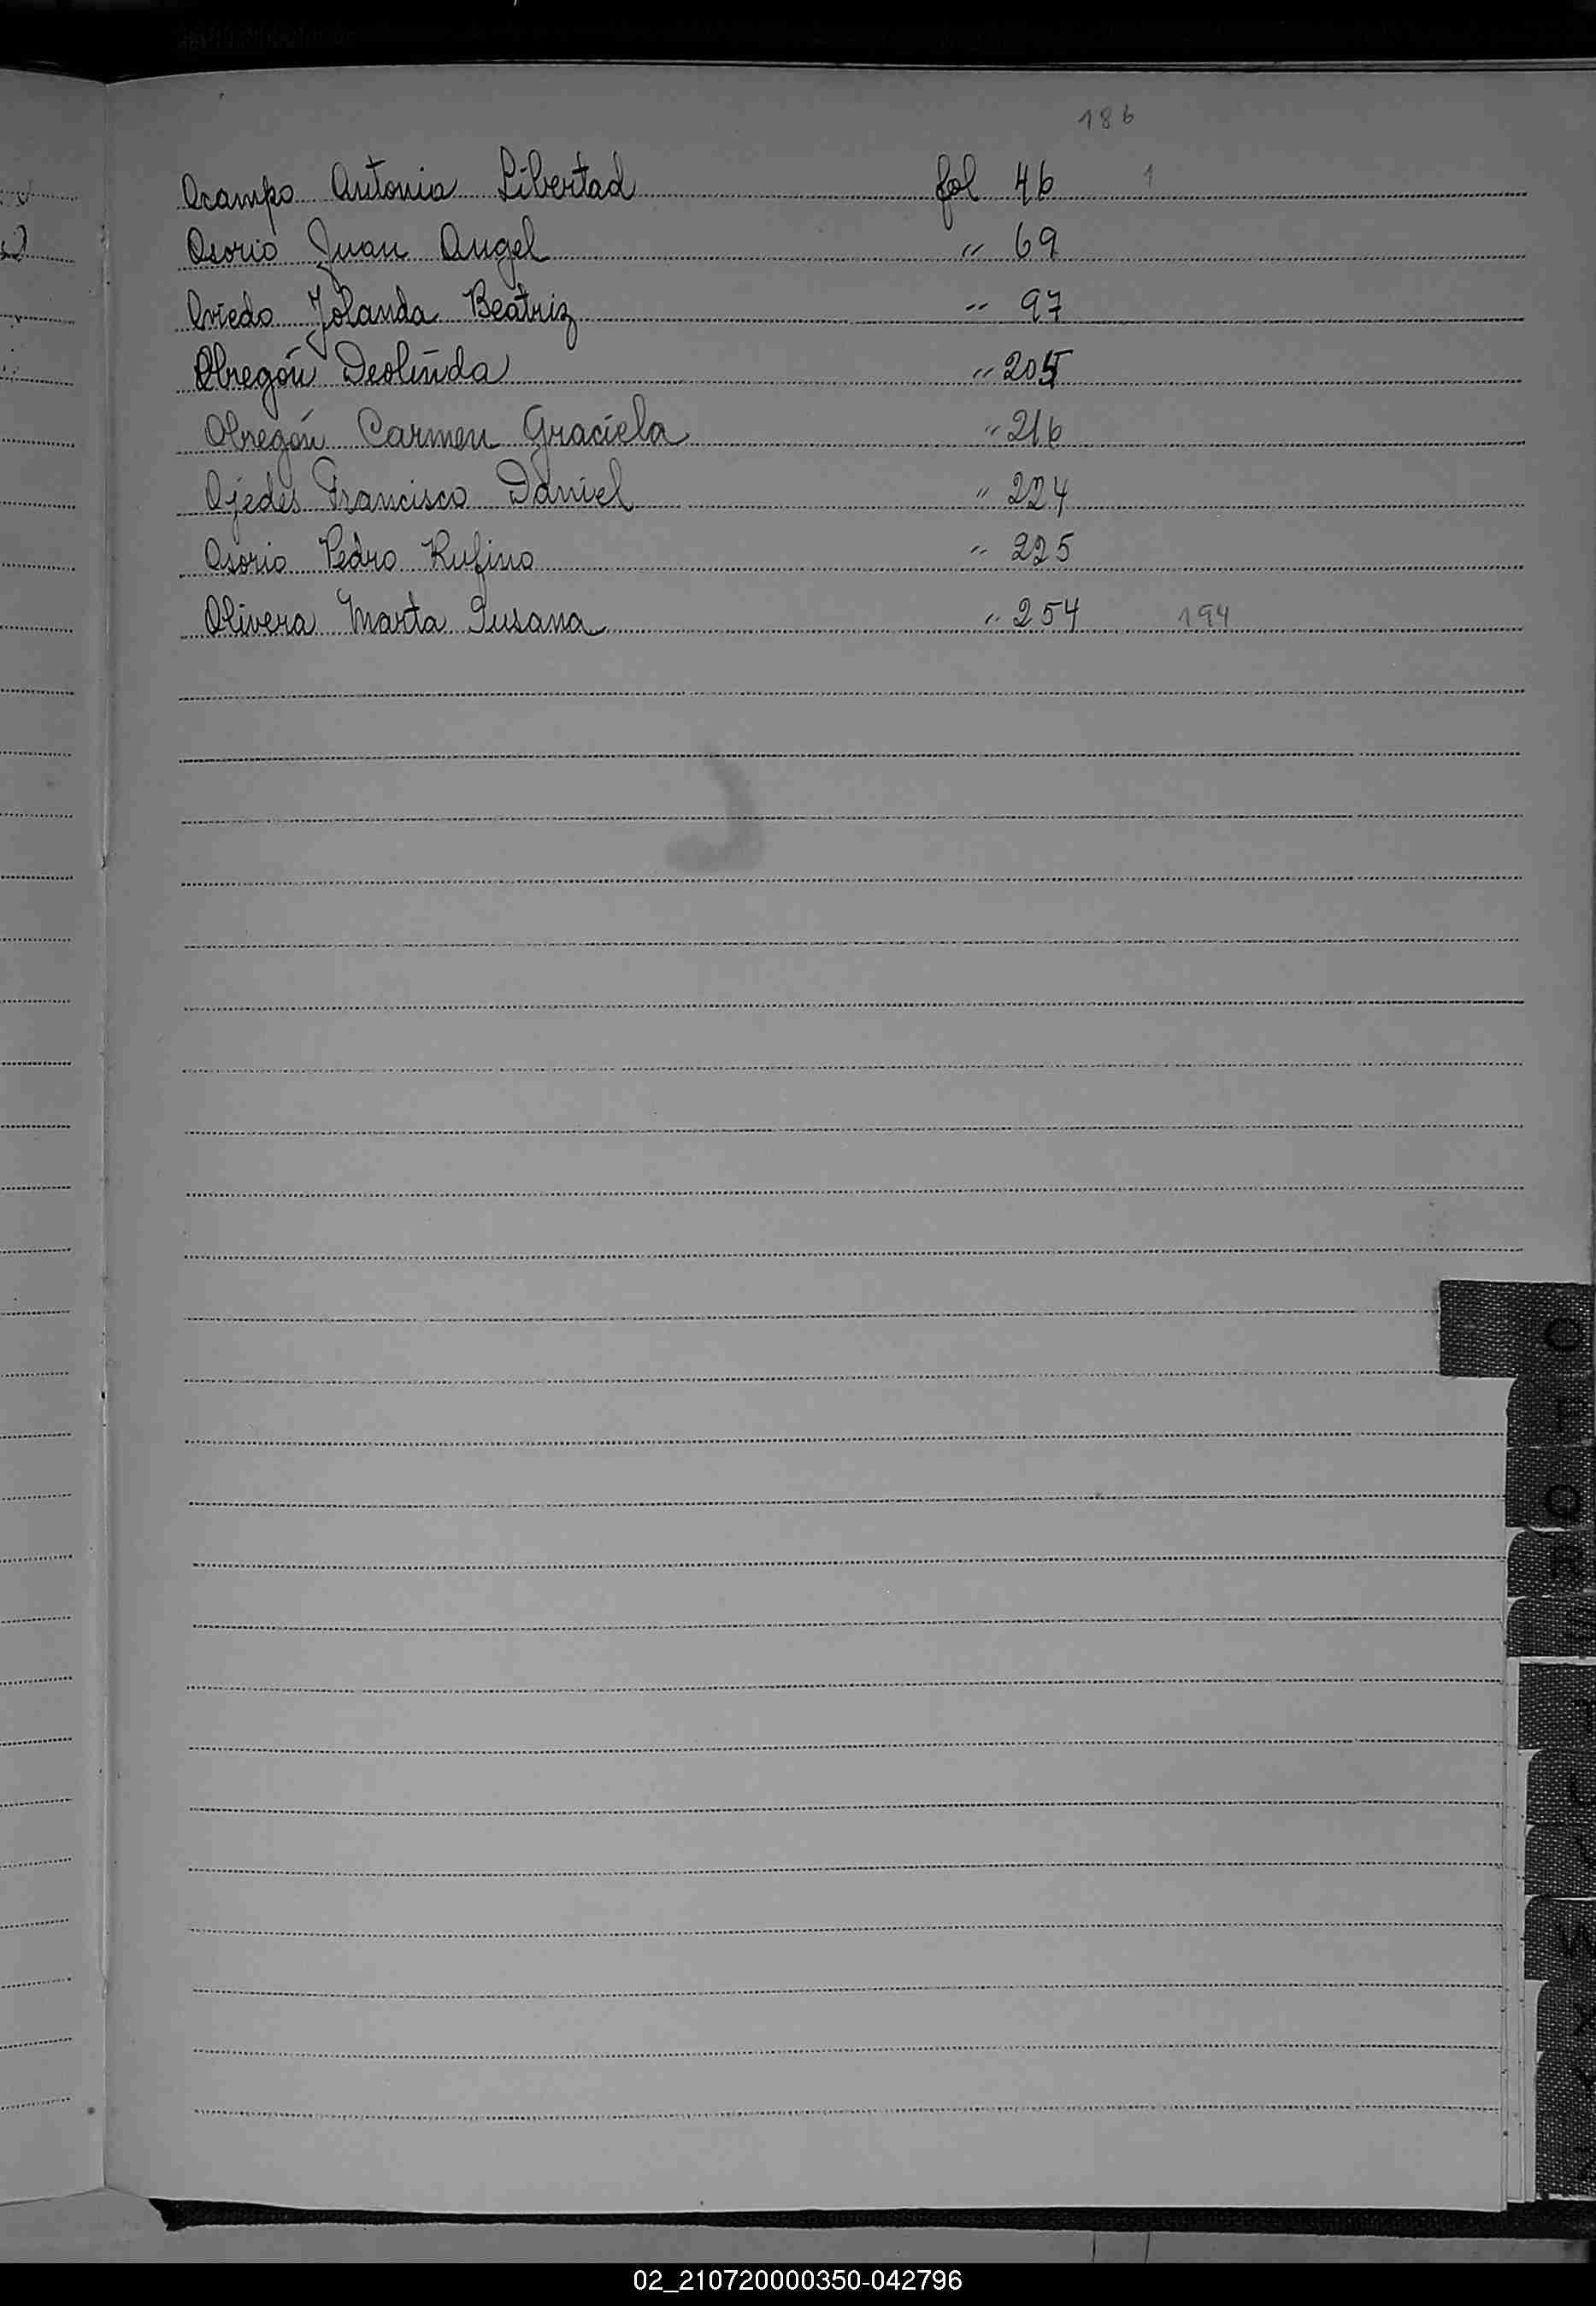 186
Ocampo Antonia Libertad fol 46 1
Osorio Juan Angel " 69
Oviedo Yolanda Beatriz " 97
Obregón Deolinda " 205
Obregón Carmen Graciela " 216
Ojedes Francisco Daniel " 224
Osorio Pedro Rufino " 225
Olivera Marta Susana " 254 194
O
Q
R
S
W
X
Y
02_210720000350-042796